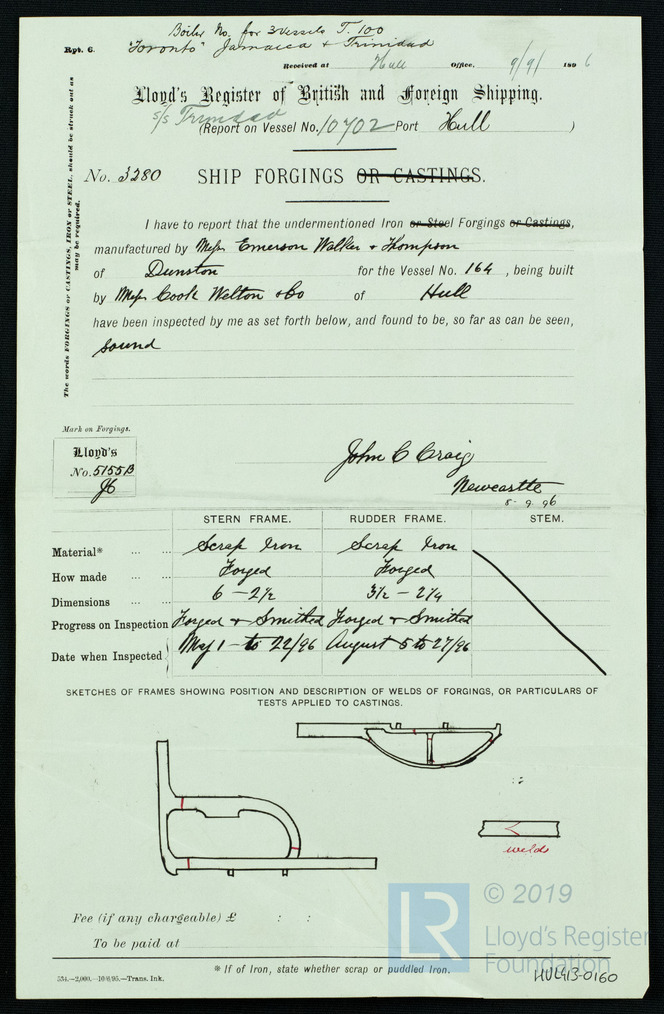 Boiler No. for 3 Vessels T. 100
Rpt. 6. "Toronto" Jamaica & Trinidad
Received at Hull Office, 9/9/ 1896
Lloyd's Register of British and Foreign Shipping.
s/s Trinidad
(Report on Vessel No. 10702 Port Hull )
No. 3280 SHIP FORGINGS OR CASTINGS.
The words FORGINGS or CASTINGS, IRON or STEEL, should be struck out as
may be required.
I have to report that the undermentioned Iron or Steel Forgings or Castings,
manufactured by Messrs Emerson Walker & Thompson
of Dunston for the Vessel No. 164, being built
by Messrs Cook Welton & Co of Hull
have been inspected by me as set forth below, and found to be, so far as can be seen,
sound
Mark on Forgings.
Lloyd's
No. 5155B
JC
John C Craig
Newcastle
8-9-96
STERN FRAME. RUDDER FRAME. STEM.
Material* ... ... Scrap Iron Scrap Iron
How made ... ... Forged Forged
Dimensions ... ... 6 – 2½ 3½ – 2¼
Progress on Inspection Forged & Smithed Forged & Smithed
Date when Inspected May 1 to 22/96 August 5 to 27/96
SKETCHES OF FRAMES SHOWING POSITION AND DESCRIPTION OF WELDS OF FORGINGS, OR PARTICULARS OF
TESTS APPLIED TO CASTINGS.
welds
Fee (if any chargeable) £ : :
To be paid at
* If of Iron, state whether scrap or puddled Iron.
534.—2,000.—10/8/95.—Trans. Ink.
LR
© 2019
Lloyd's Register
Foundation
HUL413-0160